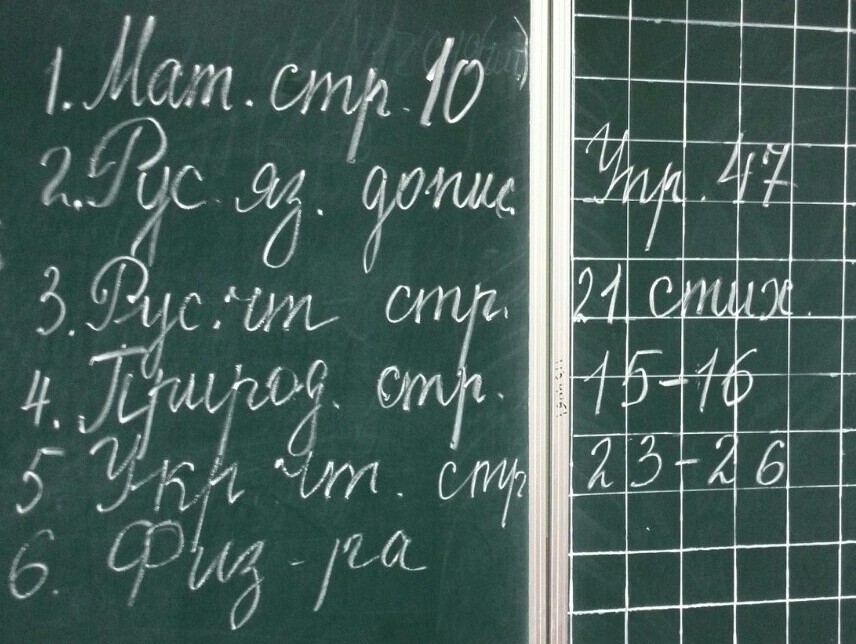 1. Мат. стр. 10
2. Рус яз. допис. Упр. 47
3. Рус. чт стр. 21 стих.
4. Природ. стр. 15-16
5 Укр чт. стр 23-26
6. Физ-ра